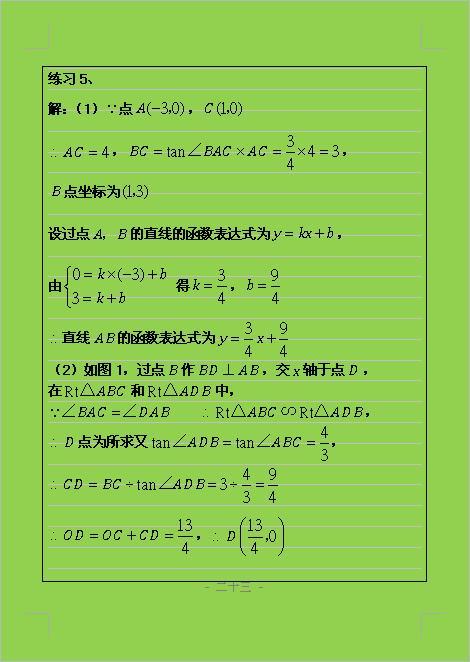 练习5、
解:(1)∵点A(-3,0),C(1,0)
∴AC=4,BC=tan∠BAC×AC=3/4×4=3,
B点坐标为(1,3)
设过点A,B的直线的函数表达式为y=kx+b,
由{0=k×(-3)+b 3=k+b 得k=3/4,b=9/4
∴直线AB的函数表达式为y=3/4x+9/4
(2)如图1,过点B作BD⊥AB,交x轴于点D,
在Rt△ABC和Rt△ADB中,
∵∠BAC=∠DAB ∴Rt△ABC∽Rt△ADB,
∴D点为所求又tan∠ADB=tan∠ABC=4/3,
∴CD=BC÷tan∠ADB=3÷4/3=9/4
∴OD=OC+CD=13/4,∴D(13/4,0)
- 二十三 -